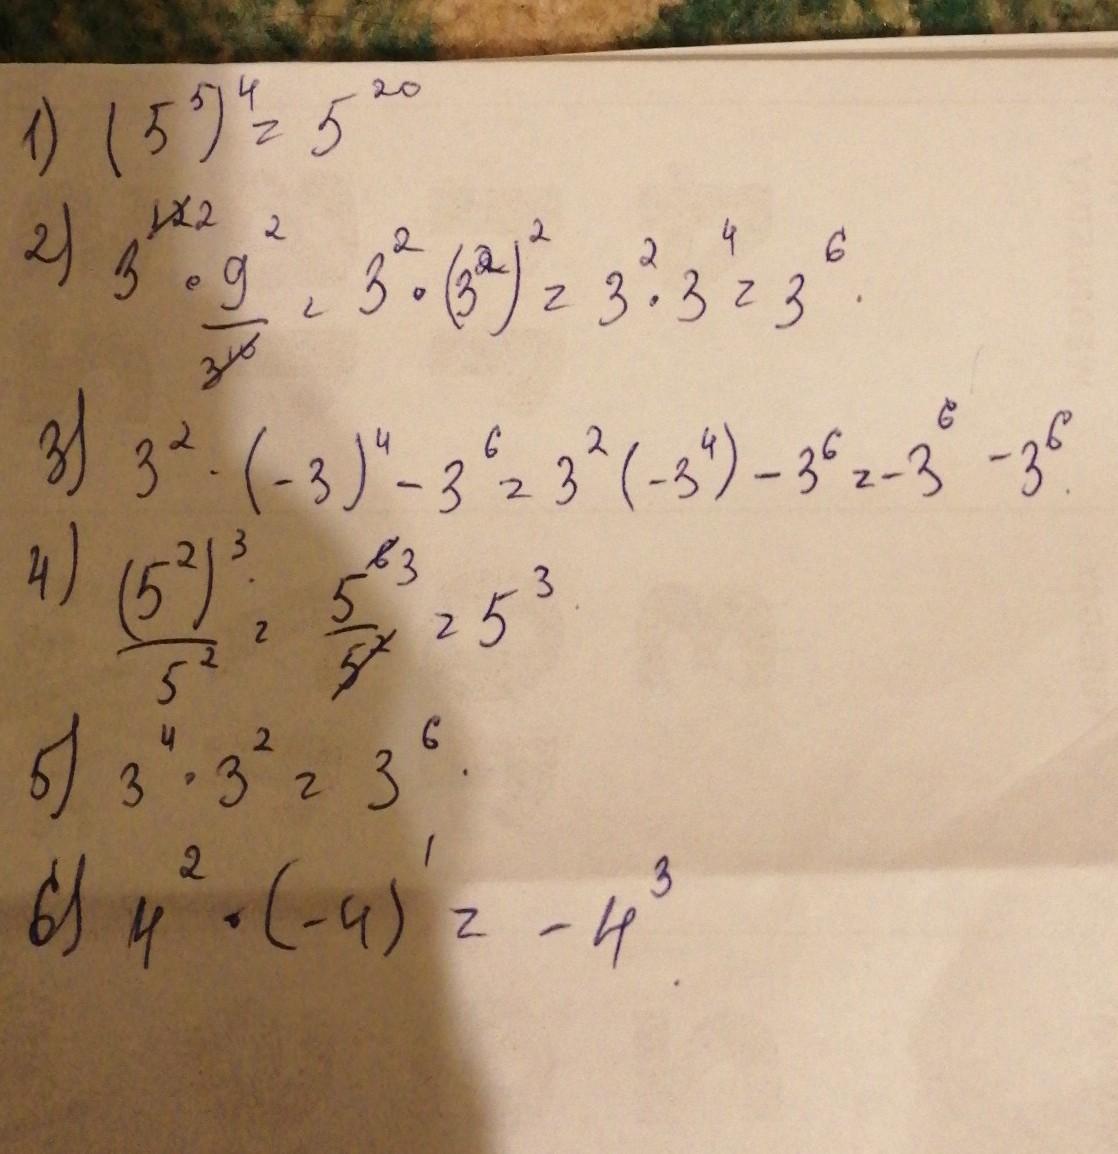 1) (5⁵)⁴ = 5²⁰
2) 3¹² ² · 9² / 3¹⁰ = 3² · (3²)² = 3² · 3⁴ = 3⁶.
3) 3² · (-3)⁴ - 3⁶ = 3² (-3⁴) - 3⁶ = -3⁶ - 3⁶.
4) (5²)³ / 5² = 5⁶ ³ / 5² = 5³.
5) 3⁴ · 3² = 3⁶.
6) 4² · (-4)¹ = -4³.